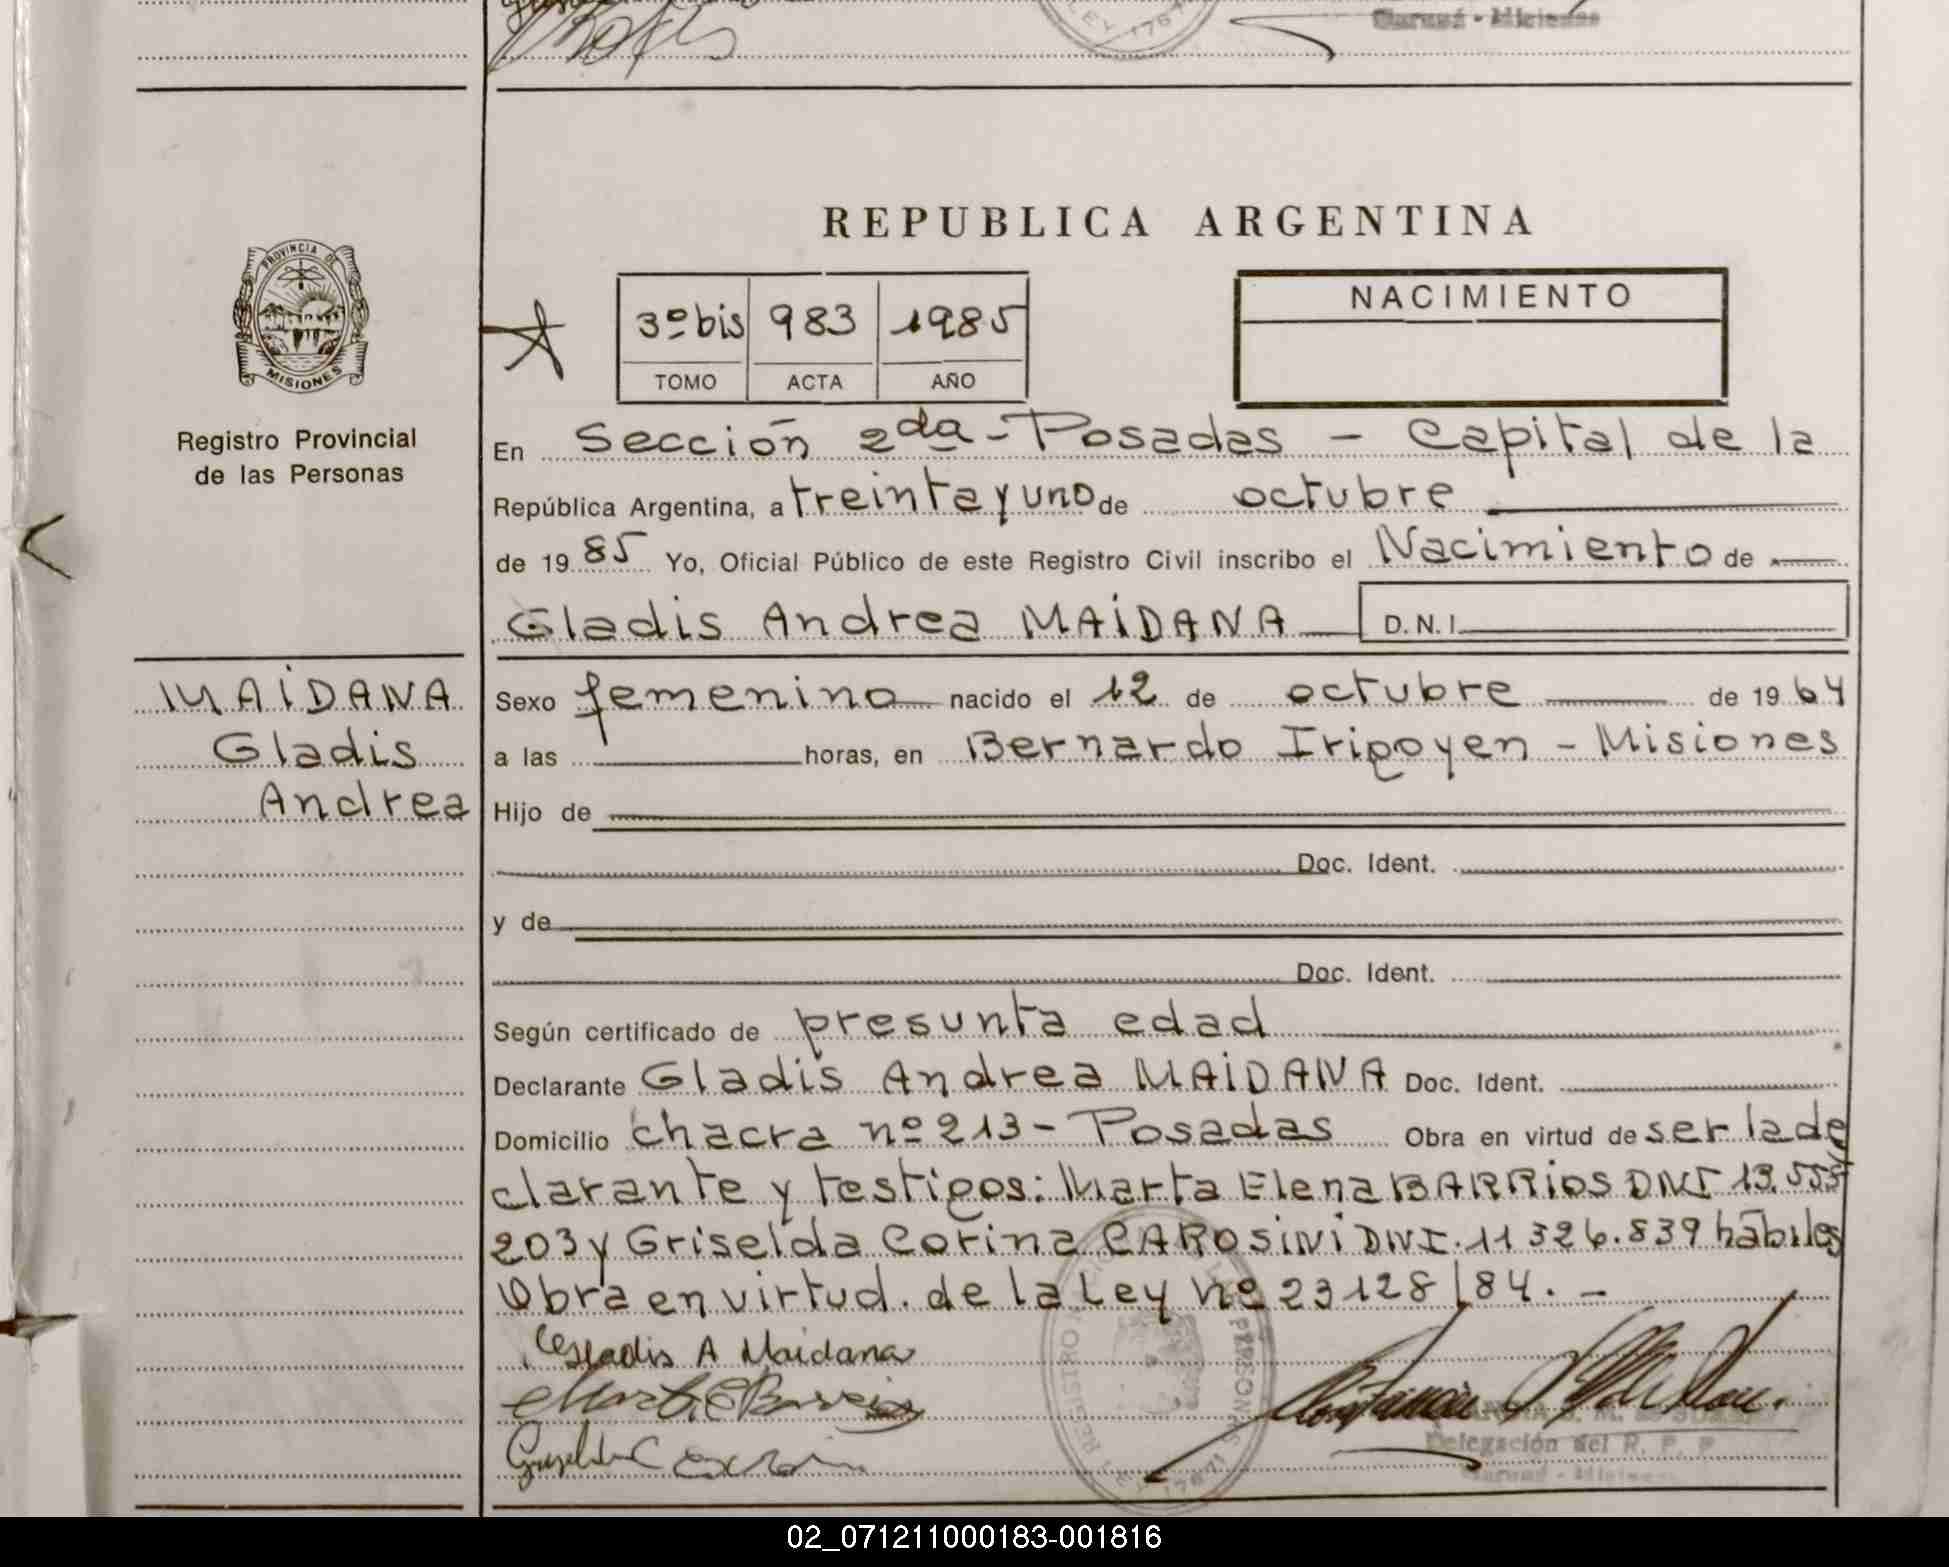 Garupá - Misiones
LEY 17671
REPUBLICA ARGENTINA
PROVINCIA DE
MISIONES
Registro Provincial
de las Personas
3º bis 983 1985
TOMO ACTA AÑO
NACIMIENTO
En Sección 2da - Posadas - Capital de la
República Argentina, a treinta y uno de octubre
de 19 85 Yo, Oficial Público de este Registro Civil inscribo el Nacimiento de
Gladis Andrea MAIDANA D.N.I.
MAIDANA
Gladis
Andrea
Sexo femenino nacido el 12 de octubre de 19 64
a las horas, en Bernardo Irigoyen - Misiones
Hijo de
Doc. Ident.
y de
Doc. Ident.
Según certificado de presunta edad
Declarante Gladis Andrea MAIDANA Doc. Ident.
Domicilio chacra nº 213 - Posadas Obra en virtud de ser la de
clarante y testigos: Marta Elena BARRIOS DNI 13.555
203 y Griselda Corina CAROSINI DNI. 11 326.839 hábiles
Obra en virtud. de la Ley nº 23128/84. -
Gladis A Maidana
REGISTRO
PERSONAS
LEY 17671
Delegación del R. P. P
Garupá - Misiones
02_071211000183-001816